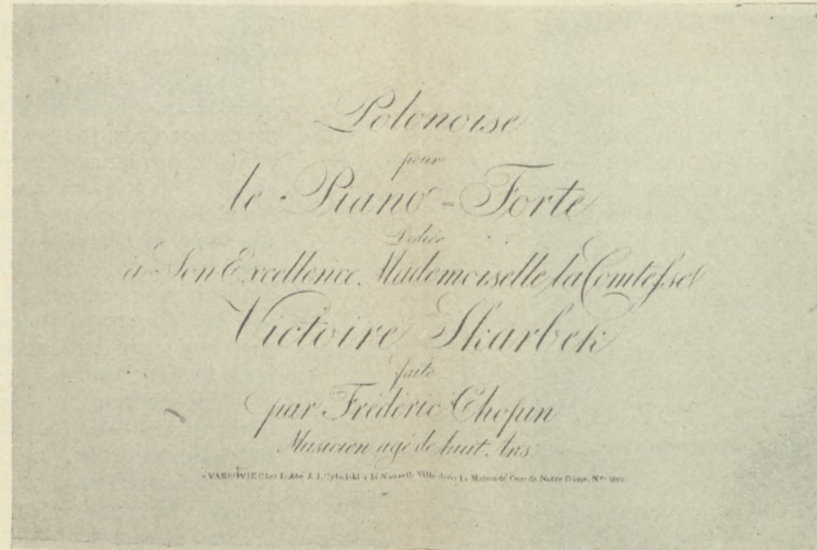 Polonoise
pour
le Piano-Forte
Dediée
à Son Excellence Mademoiselle la Comtesse
Victoire Skarbek
faite
par Frédéric Chopin
Musicien agé de huit Ans
à VARSOVIE Chez l'abbé J. J. Cybulski à la Nouvelle Ville dans la Maison de Cure de Notre Dame, Nro